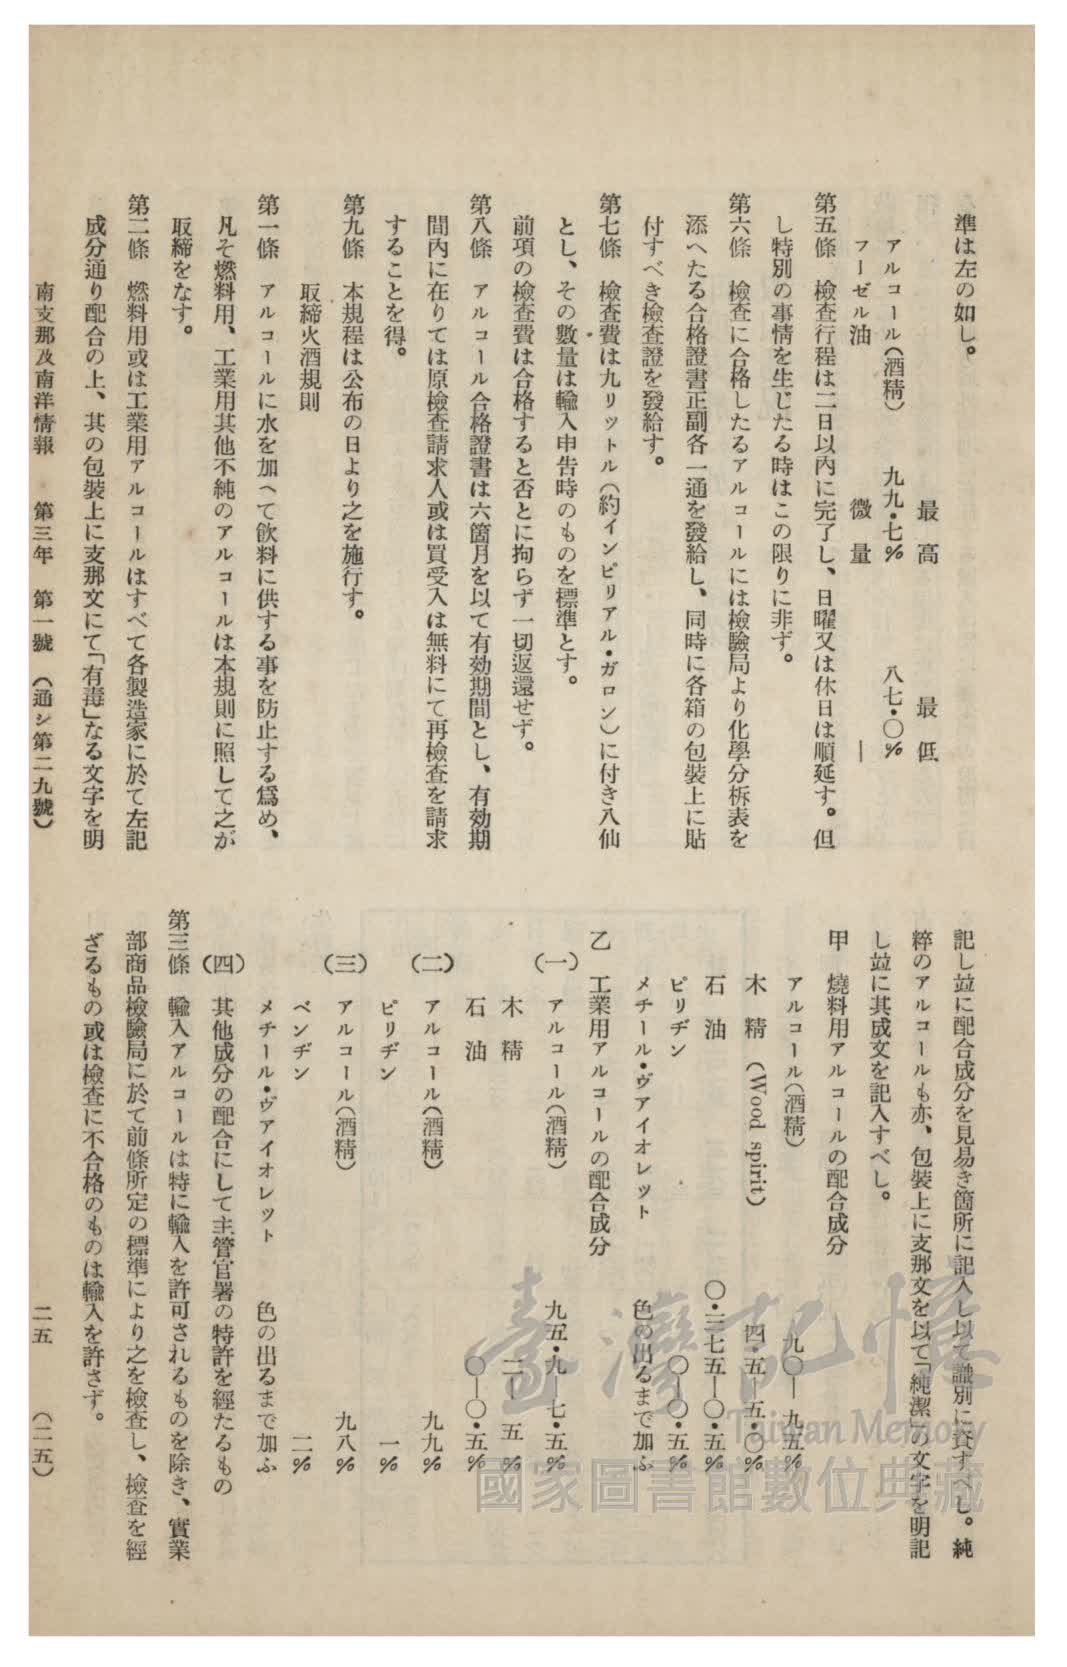 準は左の如し。
最高　最低
アルコール(酒精)　九九・七%　八七・〇%
フーゼル油　微量　―
第五條　檢査行程は二日以內に完了し、日曜又は休日は順延す。但
し特別の事情を生じたる時はこの限りに非ず。
第六條　檢査に合格したるアルコールには檢驗局より化學分柝表を
添へたる合格證書正副各一通を發給し、同時に各箱の包裝上に貼
付すべき檢査證を發給す。
第七條　檢査費は九リットル(約インピリアル・ガロン)に付き八仙
とし、その數量は輸入申告時のものを標準とす。
前項の檢査費は合格すると否とに拘らず一切返還せず。
第八條　アルコール合格證書は六箇月を以て有効期間とし、有効期
間內に在りては原檢査請求人或は買受人は無料にて再檢査を請求
することを得。
第九條　本規程は公布の日より之を施行す。
取締火酒規則
第一條　アルコールに水を加へて飮料に供する事を防止する爲め、
凡そ燃料用、工業用其他不純のアルコールは本規則に照して之が
取締をなす。
第二條　燃料用或は工業用アルコールはすべて各製造家に於て左記
成分通り配合の上、其の包裝上に支那文にて「有毒」なる文字を明
記し竝に配合成分を見易き箇所に記入し以て識別に資すべし。純
粹のアルコールも亦、包裝上に支那文を以て「純潔」の文字を明記
し竝に其成文を記入すべし。
甲　燒料用アルコールの配合成分
アルコール(酒精)　九〇―九五%
木精　(Wood spirit)　四・五―五・〇%
石油　〇・二七五―〇・五%
ピリヂン　〇―〇・五%
メチール・ヴアイオレット　色の出るまで加ふ
乙　工業用アルコールの配合成分
(一)　アルコール(酒精)　九五・九―七・五%
木精　二―五%
石油　〇―〇・五%
(二)　アルコール(酒精)　九九%
ピリヂン　一%
(三)　アルコール(酒精)　九八%
ベンヂン　二%
メチール・ヴアイオレット　色の出るまで加ふ
(四)　其他成分の配合にして主管官署の特許を經たるもの
第三條　輸入アルコールは特に輸入を許可されるものを除き、實業
部商品檢驗局に於て前條所定の標準により之を檢査し、檢査を經
ざるもの或は檢査に不合格のものは輸入を許さず。
南支那及南洋情報　第三年　第一號　(通シ第二九號)　二五　(二五)
臺灣記憶
Taiwan Memory
國家圖書館數位典藏